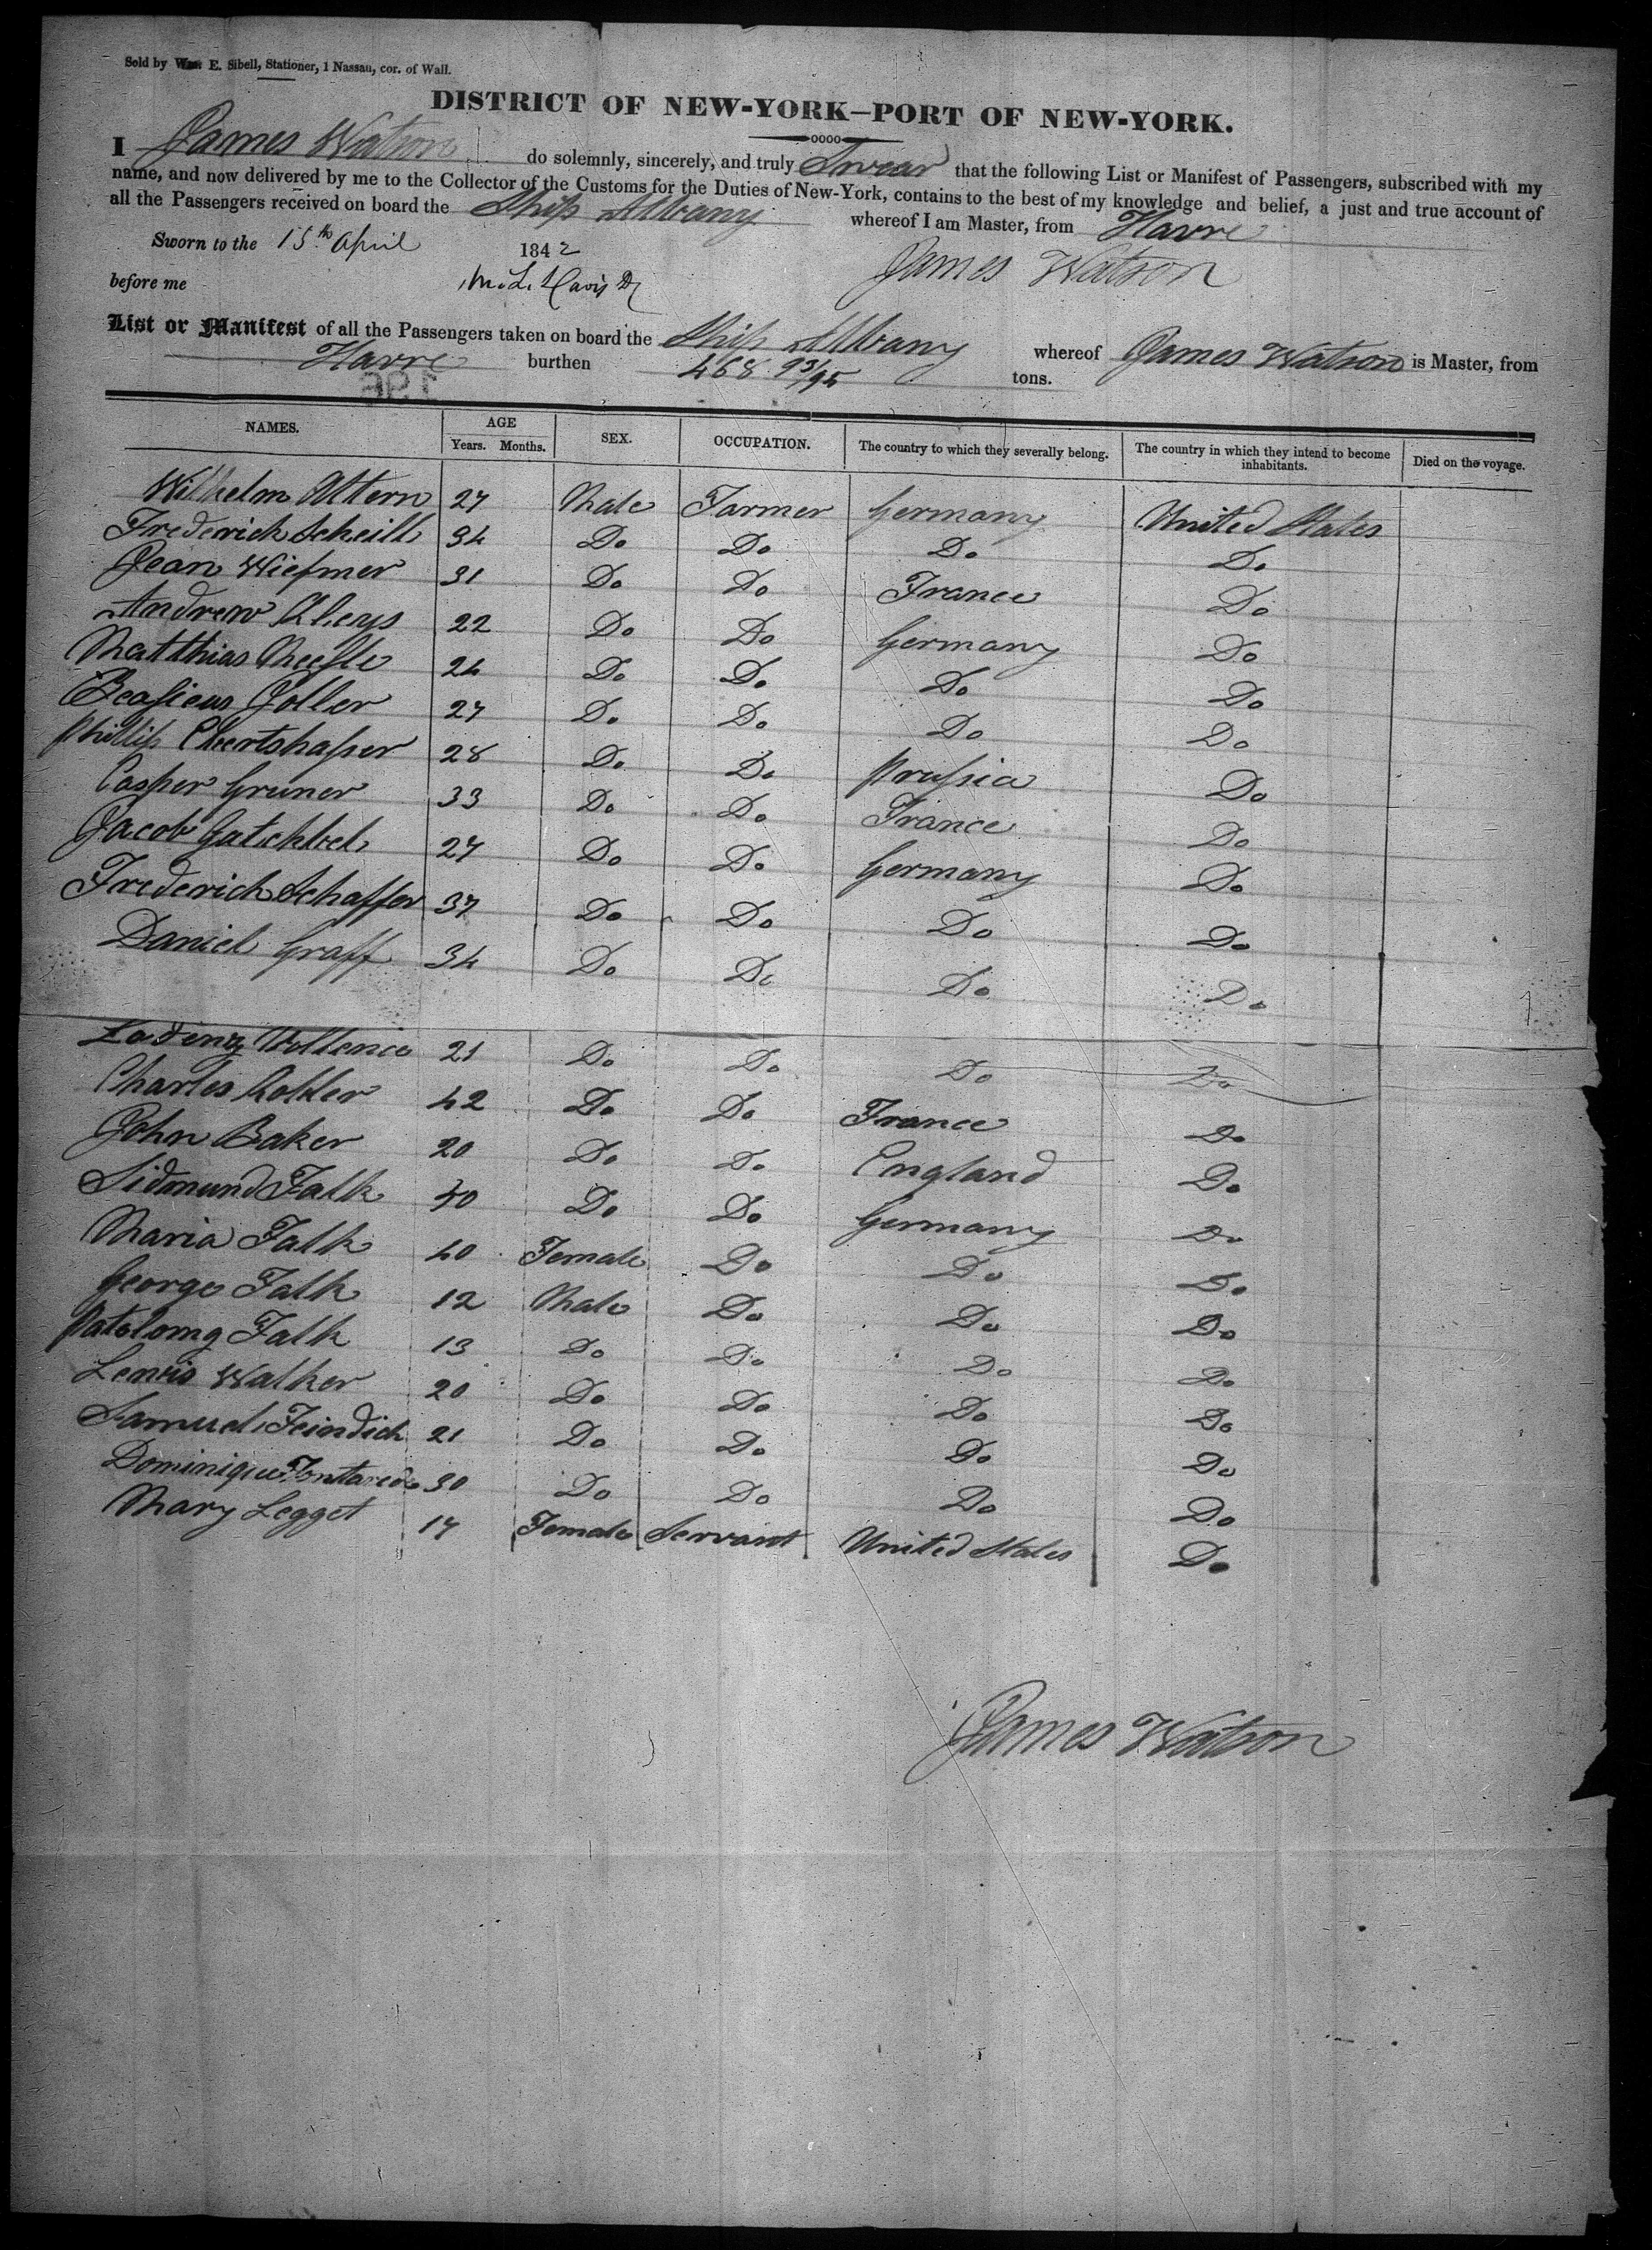 Sold by Wm. E. Sibell, Stationer, 1 Nassau, cor. of Wall.
DISTRICT OF NEW-YORK—PORT OF NEW-YORK.
I James Watson do solemnly, sincerely, and truly Swear that the following List or Manifest of Passengers, subscribed with my
name, and now delivered by me to the Collector of the Customs for the Duties of New-York, contains to the best of my knowledge and belief, a just and true account of
all the Passengers received on board the Ship Albany whereof I am Master, from Havre
Sworn to the 15th April 1842 James Watson
before me M. L. Davis
List or Manifest of all the Passengers taken on board the Ship Albany whereof James Watson is Master, from
Havre burthen 468 93/95 tons.
NAMES. AGE Years. Months. SEX. OCCUPATION. The country to which they severally belong. The country in which they intend to become inhabitants. Died on the voyage.
Wilhelm Attern 27 Male Farmer Germany United States
Frederich Scheill 34 Do Do Do Do
Jean Wiesmer 31 Do Do France Do
Andrew 22 Do Do Germany Do
Matthias 24 Do Do Do Do
Joller 27 Do Do Do Do
Phillip 28 Do Do Prussia Do
Casper Gruner 33 Do Do France Do
Jacob 27 Do Do Germany Do
Frederich Schaffer 37 Do Do Do Do
Daniel Graff 34 Do Do Do Do
21 Do Do Do Do
Charles 42 Do Do France Do
John Baker 20 Do Do England Do
Sidmund Falk 40 Do Do Germany Do
Maria Falk 40 Female Do Do Do
George Falk 12 Male Do Do Do
Falk 13 Do Do Do Do
Lewis Walker 20 Do Do Do Do
Samuel Feindich 21 Do Do Do Do
Dominique 30 Do Do Do Do
Mary Legget 17 Female Servant United States Do
James Watson